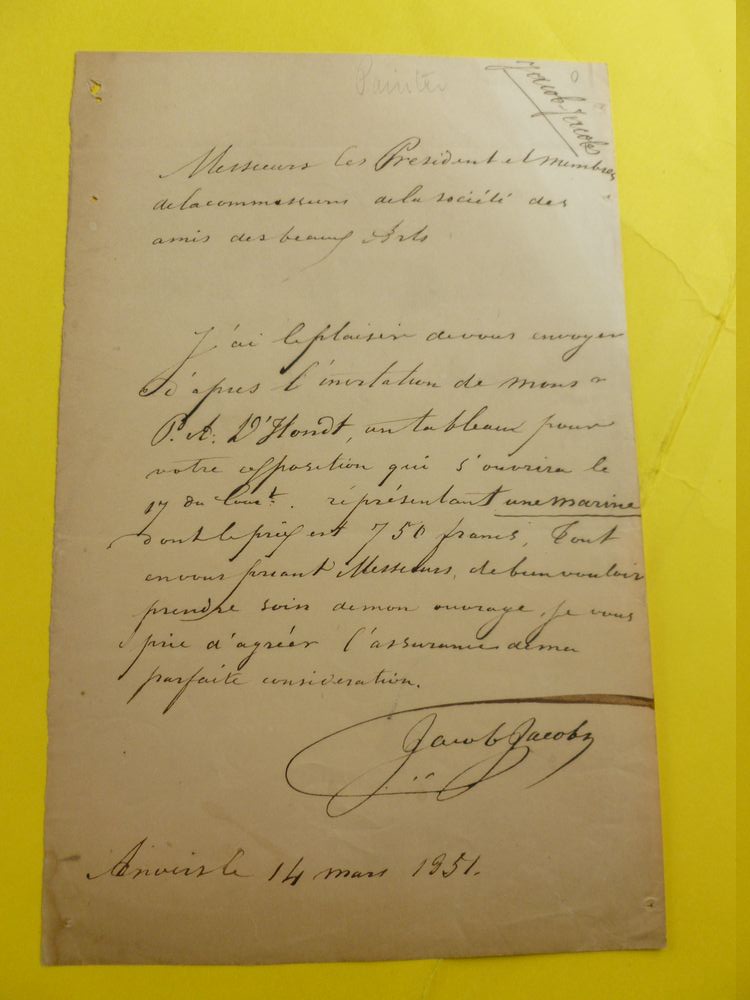 Painter
Jacob Jacobs
Messieurs les President et membres
de la commissions de la société des
amis des beaux Arts
J'ai le plaisir de vous envoyer
d'apres l'invitation de monsr
P. A. D'Hondt, un tableaux pour
votre exposition qui s'ouvrira le
17 du Court. représentant une marine
dont le prix est 750 francs, Tout
en vous priant Messieurs, de bien vouloir
prendre soin de mon ouvrage, je vous
prie d'agréer l'assurance de ma
parfaite consideration.
Jacob Jacobs
Anvers le 14 mars 1851.